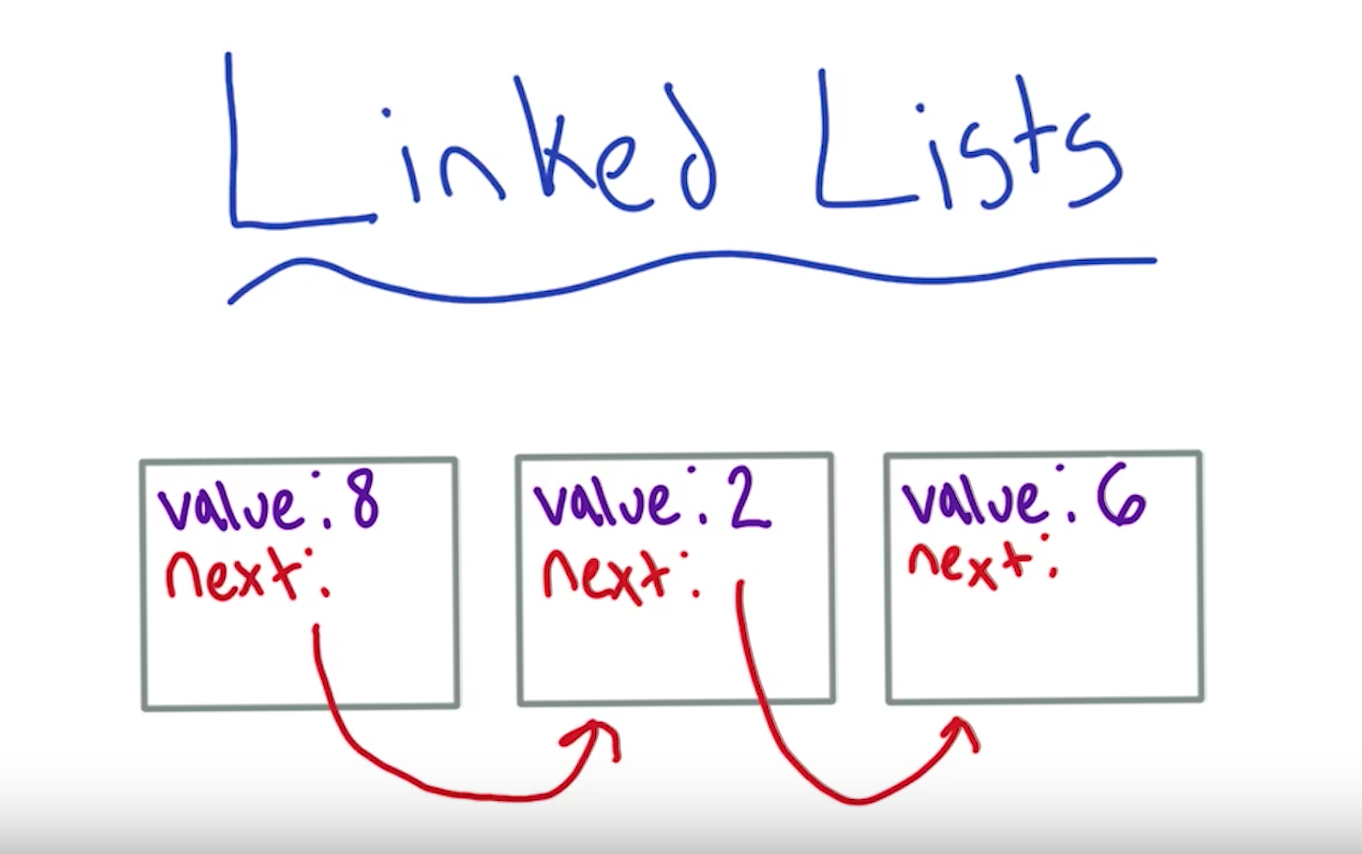 Linked Lists
value: 8
next:
value: 2
next:
value: 6
next: